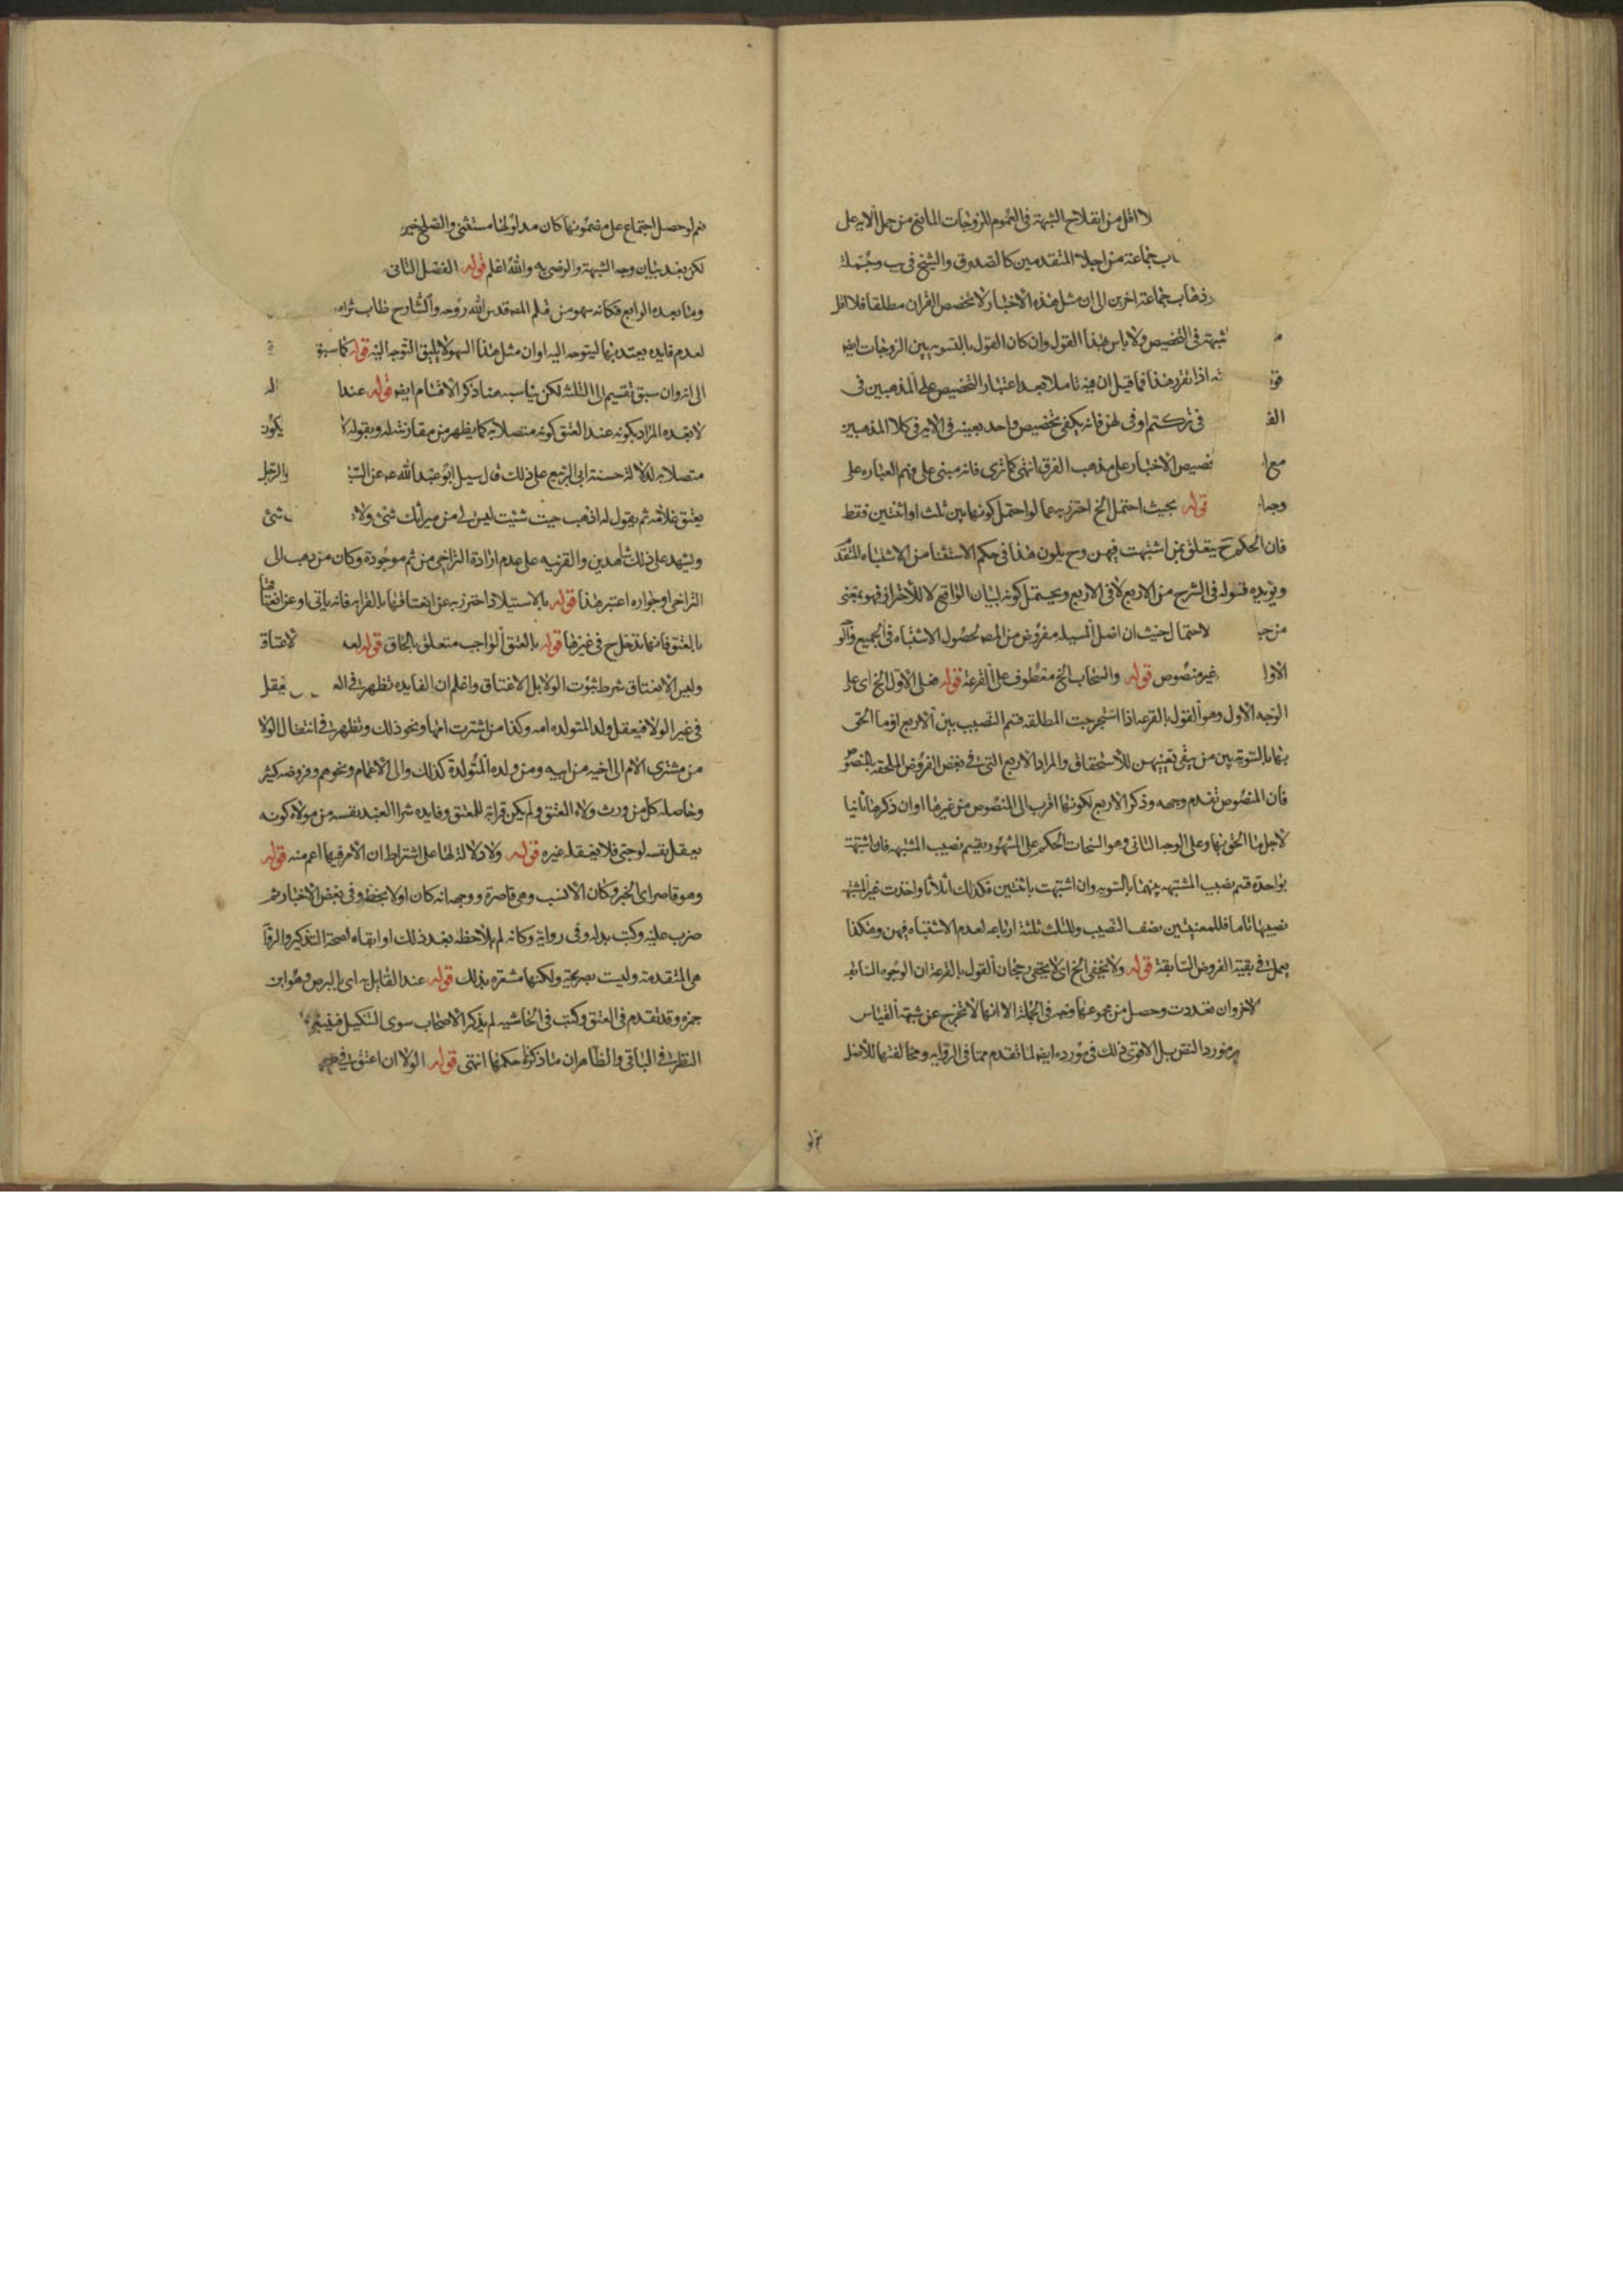 لا اقل من انقلاح الشبهة فى العموم للزوجات المانع من حمل الآيه على
اب جماعة من اجلاء المتقدمين كالصدوق والشيخ فى يب وجمله
ذهاب جماعة اخرين الى ان مثل هذه الاخبار لا تخصص القران مطلقا فلا اقل
شبهة فى التخصيص ولا باس بهذا القول وان كان القول بالتسويه بين الزوجات ايضا
اذا تقرر هذا فما قيل ان فيه تاملا بعد اعتبار التخصيص على المذهبين فى
الف فى تركتم او فى لهن فانه يكفى تخصيص واحد بعينه فى الايه فى كلا المذهبين
مع ا تخصيص الاخبار على مذهب الفرق انتهى كما ترى فانه مبنى على فهم العباره على
وجه ا قوله بحيث احتمل الخ احترز به عما لو احتمل كونها بين ثلث او اثنتين فقط
فان الحكم ح يتعلق بمن اشتبهت فيهن وح يكون هذا فى حكم الاستثنا من الاشتباه المتقد
ويؤيده قوله فى الشرح من الاربع لا فى الاربع ويحتمل كونه لبيان الواقع لا للاحتراز فهو بمعنى
من حيا لاحتمال حيث ان اصل المسيله مفروض من المص لحصول الاشتباه فى الجميع والو
الاوا غير منصوص قوله والسحاب الخ معطوف على القرعة قوله فعلى الاول الخ اى على
الوجه الاول وهو القول بالقرعه اذا استخرجت المطلقه قسم النصيب بين الاربع او ما الحق
بها بالسوية بين من بقى تعينهن للاستحقاق والمراد الاربع التى فى بعض الفروض الملحقه بالمنصو
فان المنصوص تقدم وجهه وذكر الاربع لكونها اقرب الى المنصوص من غيرها اوان ذكرها ثانيا
لاجل ما الحق بها وعلى الوجه الثانى وهو السحاب الحكم على المشهور يقسم نصيب المشتبهه فان اشتبهت
بواحدة قسم نصيب المشتبهه بينهما بالسويه وان اشتبهت باثنتين فكذلك اثلاثا واخذت غير المشتبه
نصيبها تاما فللمعنيتين نصف النصيب وللثلث ثلثة ارباعه لعدم الاشتباه فيهن وهكذا
يعمل فى بقية الفروض السابقة قوله ولا يخفى الخ اى لا يخفى رجحان القول بالقرعة ان الوجوه السابقه
لاخر وان تعددت وحصل من مجموعها وجه فى الجملة الا انها لا تخرج عن شبهة القياس
مورد النص بل الاقوى ذلك فى مورده ايضا لما تقدم مما فى الروايه ومخالفتها للاصل
نعم لو حصل اجتماع على مضمونها كان مدلولها مستثنى والصلح خير
لكن بعد بيان وجه الشبهة والرضى به والله اعلم قوله الفصل الثانى
وما بعده الرابع فكانه سهو من قلم المص قدس الله روحه والشارح طاب ثراه
لعدم فايده يعتد بها ليتوجه اليه اوان مثل هذا السهو لا يليق التوجه اليه قوله كما سبق
الى انه وان سبق تقسيم الى الثلثه لكن يناسب هنا ذكر الاقسام ايضا قوله عندا
لا بعده المراد بكونه عند العتق كونه متصلا به كما يظهر من مقارنته له وبقوله لا يكون
متصلا به لدلالة حسنة ابى الربيع على ذلك قال سيل ابو عبد الله عه عن السا والرجل
يعتق غلامه ثم يقول له اذهب حيث شئت ليس لى من ميراثك شئ ولا شئ
ويشهد على ذلك شاهدين والقرينه على عدم ارادة التراخى من ثم موجودة وكان من ذهب الى
التراخى او جوازه اعتبر هذا قوله بالاستيلاد احترز به عن انعتاقها بالقرابه فانه ياتى او عن انعتاقها
بالعتق فانها تدخل ح فى غيرها قوله بالعتق الواجب متعلق بالحاق قوله لعه لاعتاق
وليس الانعتاق شرط ثبوت الولا بل الاعتاق واعلم ان الفايده تظهر فى اله يعقل
فى غير الولا فيعقل ولد المتولده امه وكذا من اشترت امها ونحو ذلك وتظهر فى انتقال الولا
من مشترى الام الى اخيه من ابيه ومن ولده المتولدة كذلك والى الاعمام ونحوهم وفروضه كثير
وحاصله كل من ورث ولاء المعتق ولم يكن قرابة للمعتق وفايده شرا العبد نفسه من مولاه كونه
يعقل نفسه لو جنى فلا يعقله غيره قوله ولا دلالة لها على اشتراط ان الامر فيها اعم منه قوله
وهو قاصر اى الخبر وكان الانسب وهى قاصرة ووجهه انه كان اولا بخطه وفى بعض الاخبار ثم
ضرب عليه وكتب بدله وفى رواية وكانه لم يلاحظه بعد ذلك او ابقاه لصحة التذكير والروا
هى المتقدمة وليست صريحة ولكنها مشعره بذلك قوله عند القايل به اى بالبرص وهو ابن
حمزه وقد تقدم فى العتق وكتب فى الحاشيه لم يذكر الاصحاب سوى التنكيل فينبغى
النظر فى الباقى والظاهر ان ما ذكرنا حكمها انتهى قوله الولا ان اعتق فى